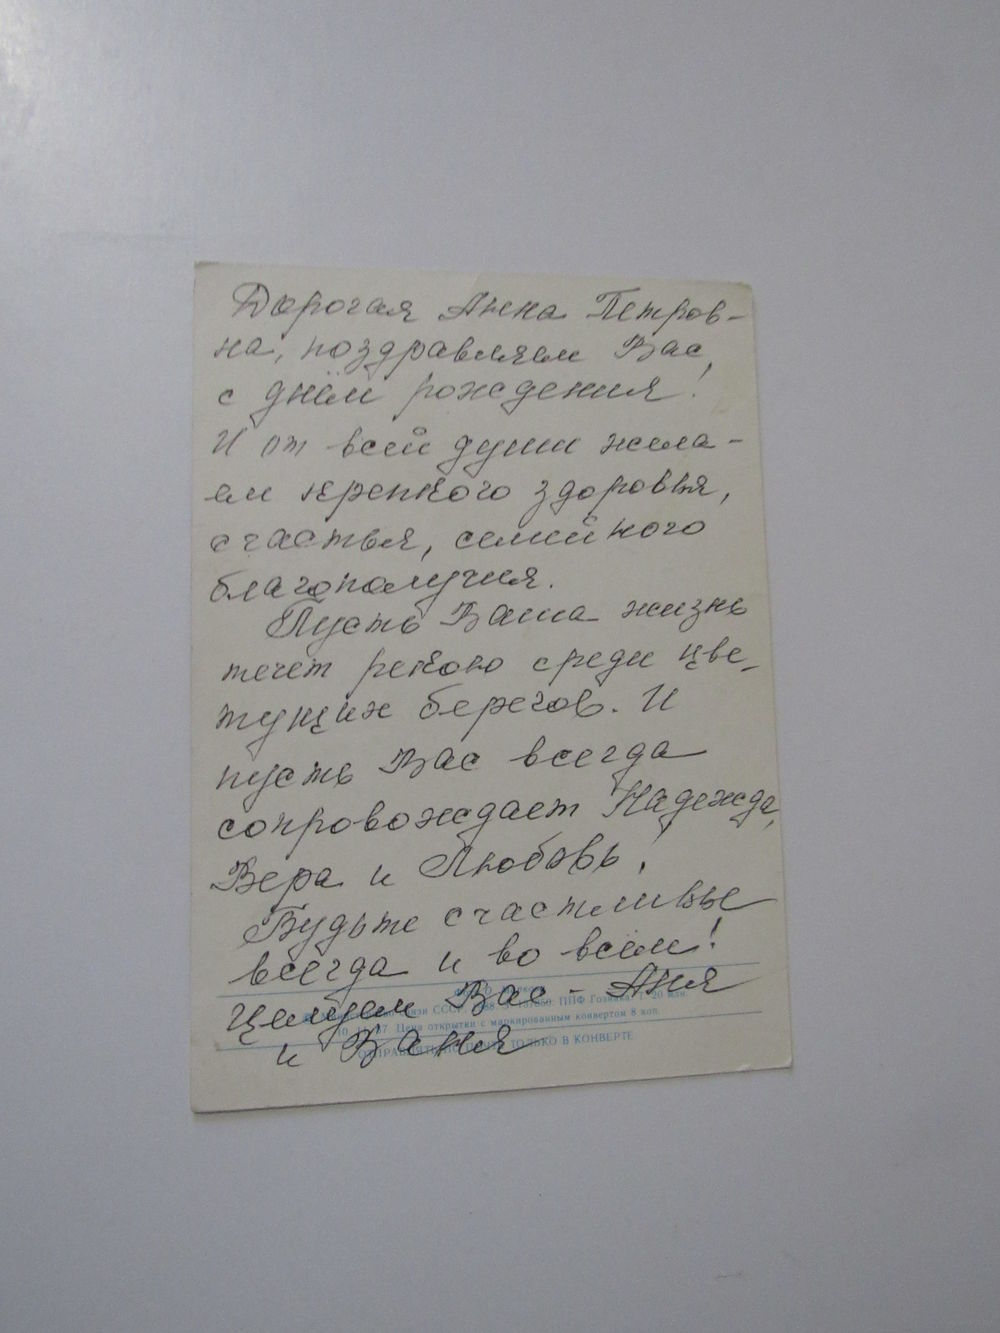 Дорогая Анна Петров-
на, поздравляем Вас
с днём рождения!
И от всей души жела-
ем крепкого здоровья,
счастья, семейного
благополучия.
Пусть Ваша жизнь
течёт рекою среди цве-
тущих берегов. И
пусть Вас всегда
сопровождает Надежда,
Вера и Любовь!
Будьте счастливы
всегда и во всём!
Целуем Вас - Аня
и Ваня
связи СССР. ППФ Гознака. Т. 20 млн.
Цена открытки с маркированным конвертом 8 коп.
ОТПРАВЛЯТЬ ПО ПОЧТЕ ТОЛЬКО В КОНВЕРТЕ